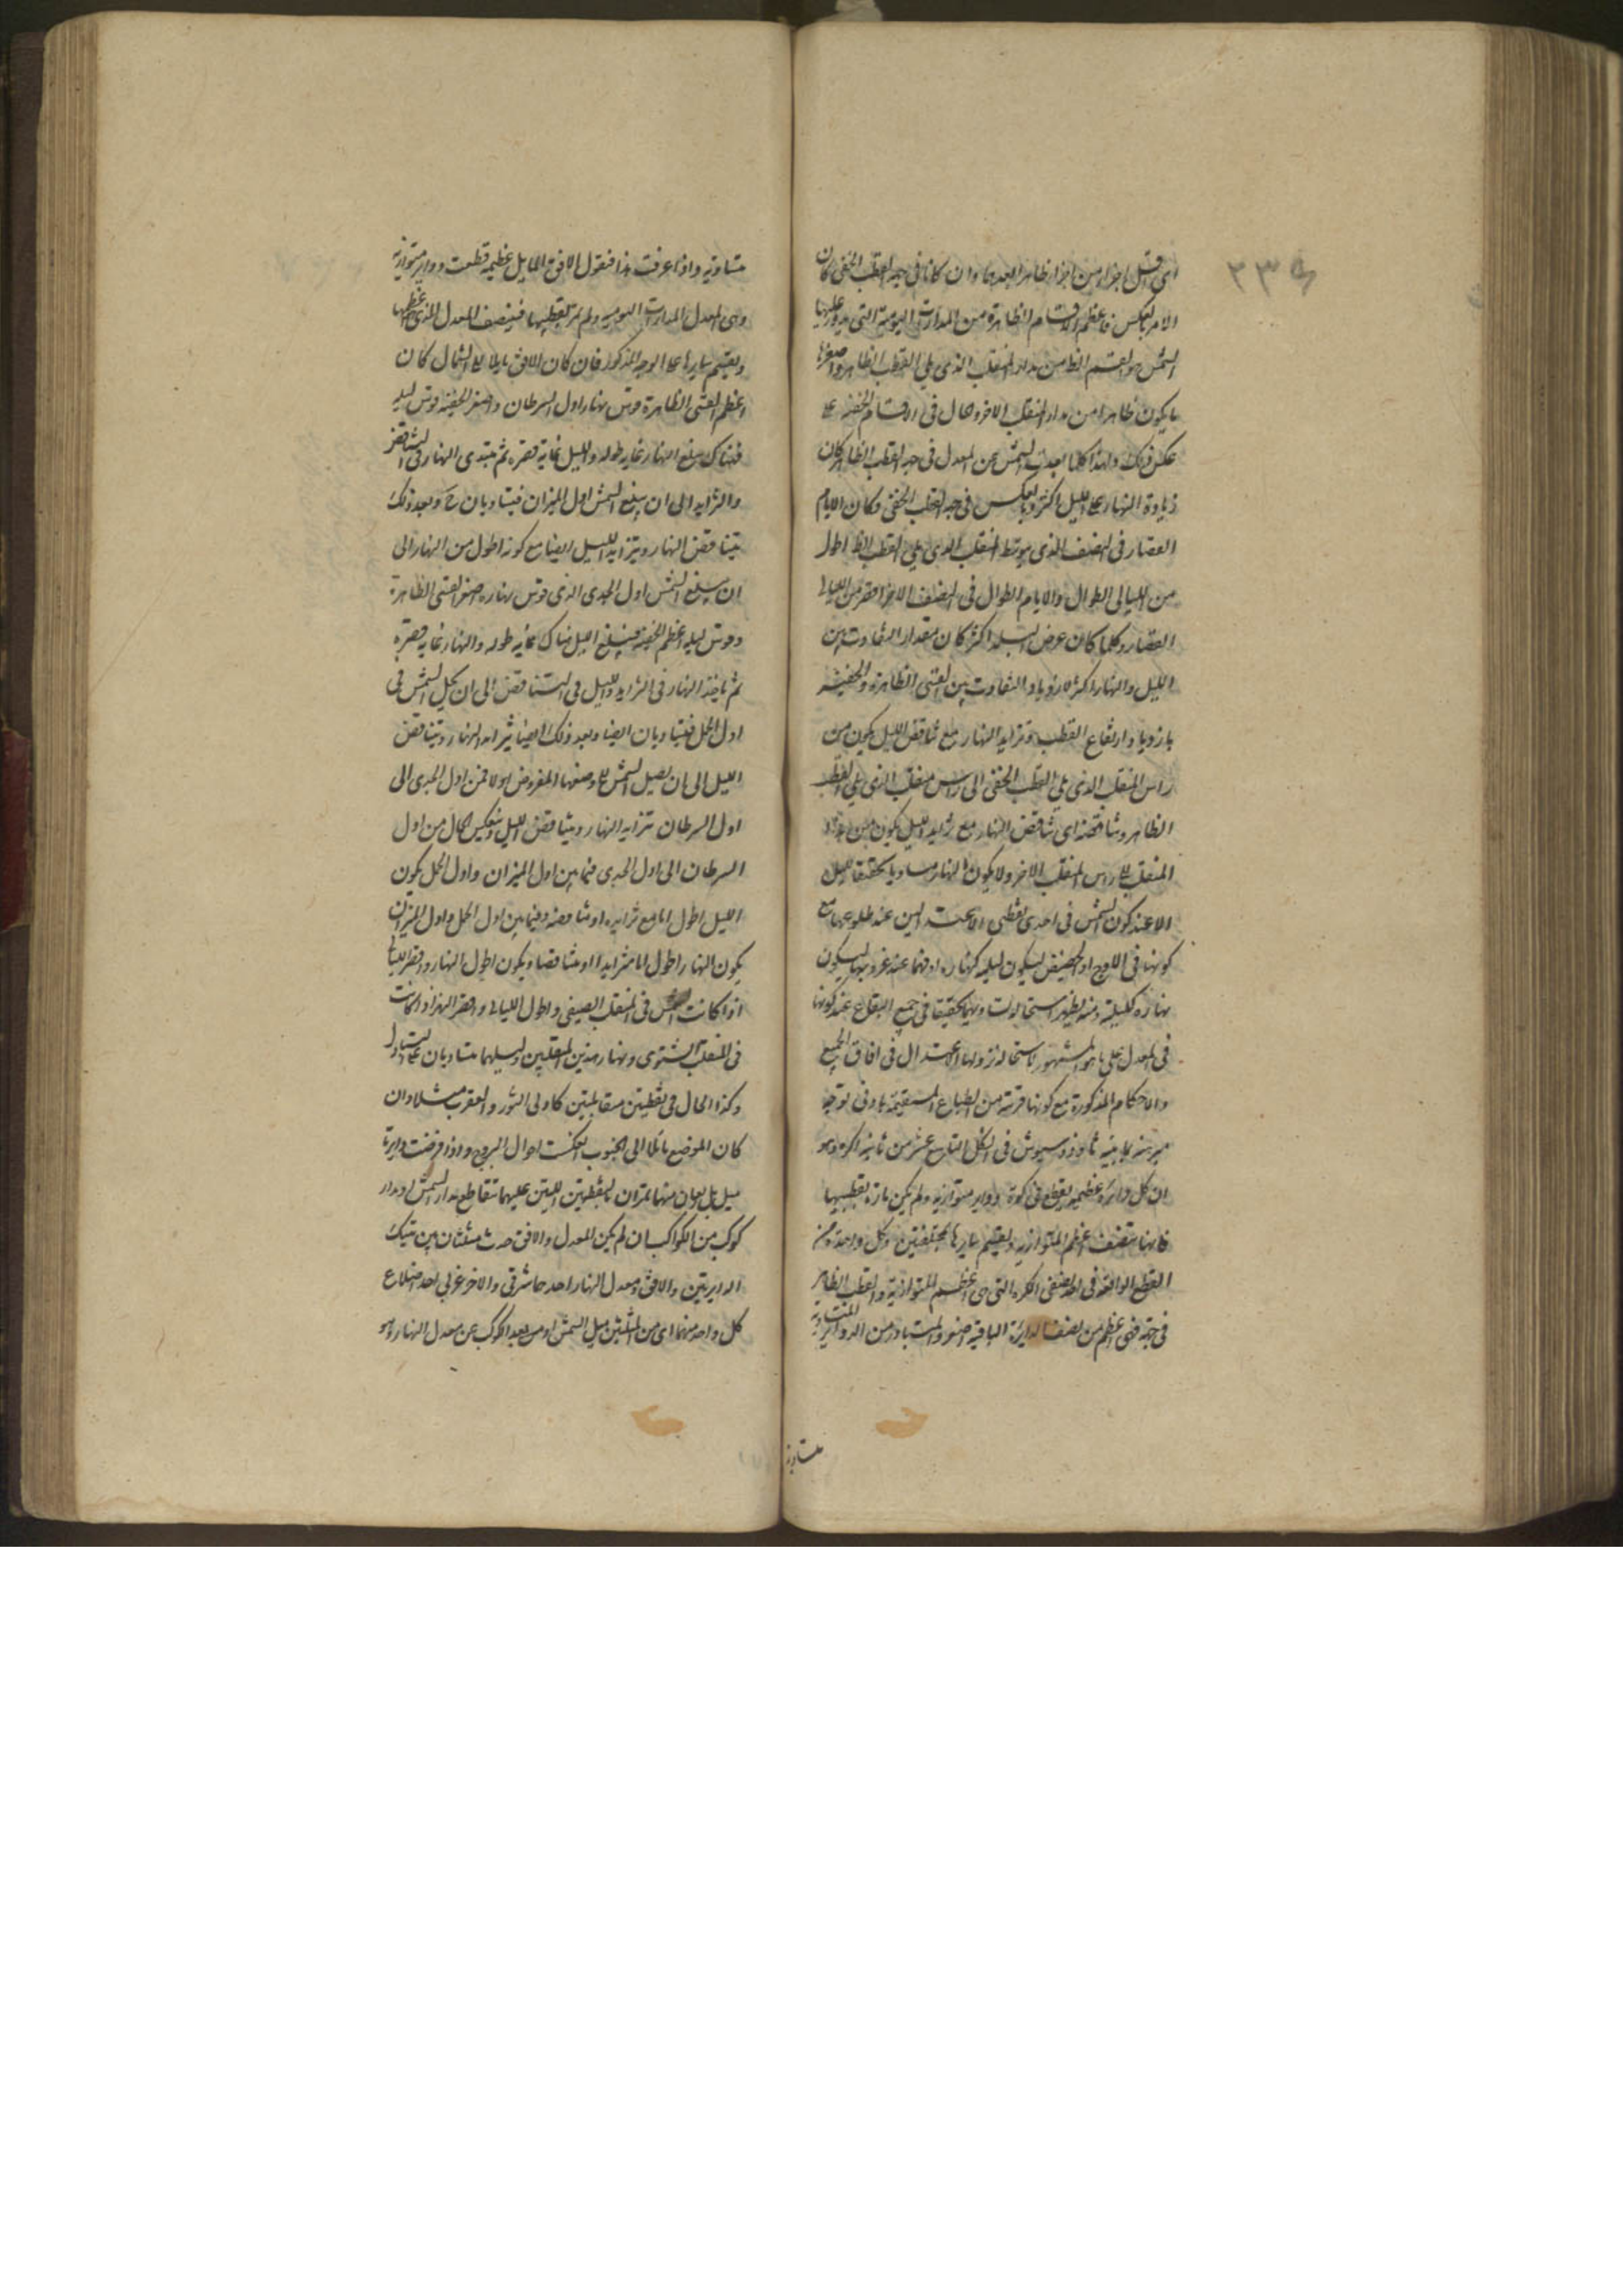 اى اقل اجزاء من اجزاء ظاهر ابعدها وان كانا فى جهة القطب الخفى كان
الامر بالعكس فاعظم الاقسام الظاهرة من المدارات اليومية التى يدور عليها
الشمس هو القسم الظا من مدار المنقلب الذى يلى القطب الظاهر واصغرها
ما يكون ظاهرا من مدار المنقلب الاخر والحال فى الاقسام الخفية على
عكس ذلك ولهذا كلما ابعدت الشمس عن المعدل فى جهة القطب الظاهر كان
زيادة النهار على الليل اكثر وبالعكس فى جهة القطب الخفى وكان الايام
القصار فى النصف الذى يتوسط المنقلب الذى يلى القطب الظا اطول
من الليالى الطوال والايام الطوال فى النصف الاخر اقصر من الليالى
القصار وكلما كان عرض البلد اكثر كان مقدار التفاوت بين
الليل والنهار اكثر لازدياد التفاوت بين القسى الظاهرة والخفية
بازدياد ارتفاع القطب وتزايد النهار مع تناقص الليل يكون من
راس المنقلب الذى يلى القطب الخفى الى راس منقلب الذى يلى القطب
الظاهر وتناقصه اى تناقص النهار مع تزايد الليل يكون من هذا
المنقلب الى راس المنقلب الاخر ولا يكون النهار مساويا تحقيقا لليل
الا عند كون الشمس فى احدى نقطتى الاعتدالين عند طلوعها مع
كونها فى الاوج او الحضيض ليكون ليله كنهاره او فيما عند غروبها ليكون
نهاره كليلته ومنه يظهر استحالة تساويهما تحقيقا فى جميع البقاع عند كونها
فى المعدل على ما هو المشهور لاستحالة نزولها الاعتدال فى افاق الجميع
والاحكام المذكورة مع كونها قريبة من الطباع المستقيمة بادنى توجه
مبرهنة بما بينه ثاوذوسيوس فى الشكل التاسع عشر من ثانية الاكر وهو
ان كل دائرة عظيمة يقطع فى كرة دواير متوازية ولم يكن مارة بقطبيها
فانها تنصف اعظم المتوازية وتقسم سايرها بمختلفتين وكل واحدة من
القطع الواقعة فى احد نصفى الكرة التى هى اعظم المتوازية والقطب الظاهر
فى جهته فهى اعظم من نصف الدايرة الباقية اصغر والمتبادر من الدواير المتساوية
متساوية
متساوية واذا عرفت هذا فنقول الافق المايل عظيمة قطعت دواير متوازية
وهى المعدل المدارات اليومية ولم تمر بقطبيها فينصف المعدل الذى هو اعظمها
ويقسم سايرها على الوجه المذكور فان كان الافق مايلا الى الشمال كان
اعظم القسى الظاهرة قوس نهار اول السرطان واصغر الخفية قوس ليله
فهناك يبلغ النهار غاية طوله والليل غاية قصره ثم يبتدى النهار فى التناقص
والتزايد الى ان يبلغ الشمس اول الميزان فيتساويان ح وبعد ذلك
يتناقص النهار ويتزايد الليل ايضا مع كونه اطول من النهار الى
ان يبلغ الشمس اول الجدى الذى قوس نهاره اصغر القسى الظاهرة
وقوس ليله اعظم الخفية فيبلغ الليل هناك غاية طوله والنهار غاية قصره
ثم ياخذ النهار فى التزايد والليل فى التناقص الى ان يحل الشمس فى
اول الحمل فيتساويان ايضا وبعد ذلك ايضا يتزايد النهار ويتناقص
الليل الى ان يصل الشمس الى وضعها المفروض اولا فمن اول الجدى الى
اول السرطان تزايد النهار ويتناقص الليل وينعكس الحال من اول
السرطان الى اول الجدى فما بين اول الميزان واول الحمل يكون
الليل اطول اما مع تزايده او تناقصه وفيما بين اول الحمل واول الميزان
يكون النهار اطول اما متزايدا او متناقصا ويكون اطول النهار واقصر الليالى
اذا كانت الشمس فى المنقلب الصيفى واطول الليالى واقصر النهر اذا كانت
فى المنقلب الشتوى ونهار هذين المنقلبين وليلهما متساويان على التبادل
وكذا الحال فى نقطتين متقابلتين كاولى الثور والعقرب مثلا وان
كان الموضع مائلا الى الجنوب انعكست احوال البروج واذا فرضت دايرتا
ميل بل بعدان منهما تمران بالنقطتين اللتين عليهما تقاطع مدار الشمس او مدار
كوكب من الكواكب ان لم يكن المعدل والافق حدث مثلثان بين تينك
الدايرتين والافق ومعدل النهار احدهما شرقى والاخر غربى احد اضلاع
كل واحد منهما اى من المثلثين ميل الشمس او من بعد الكوكب عن معدل النهار وهو